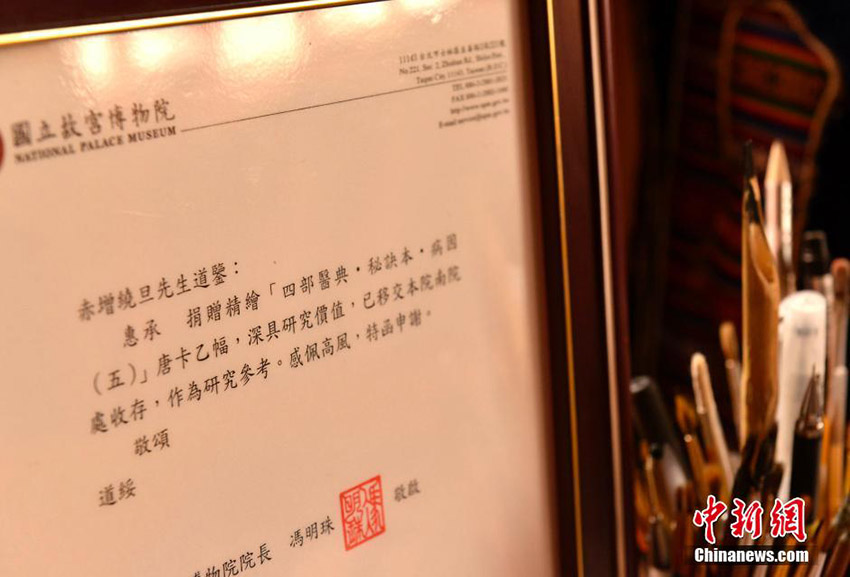 國立故宮博物院
NATIONAL PALACE MUSEUM
11143 台北市士林區至善路2段221號
No.221, Sec. 2, Zhishan Rd., Shilin Dist.,
Taipei City 11143, Taiwan (R.O.C)
赤增繞旦先生道鑒：
惠承　捐贈精繪「四部醫典·秘訣本·病因
（五）」唐卡乙幅，深具研究價值，已移交本院南院
處收存，作為研究參考。感佩高風，特函申謝。
敬頌
道綏
博物院院長　馮明珠　敬啟
中新网
Chinanews.com